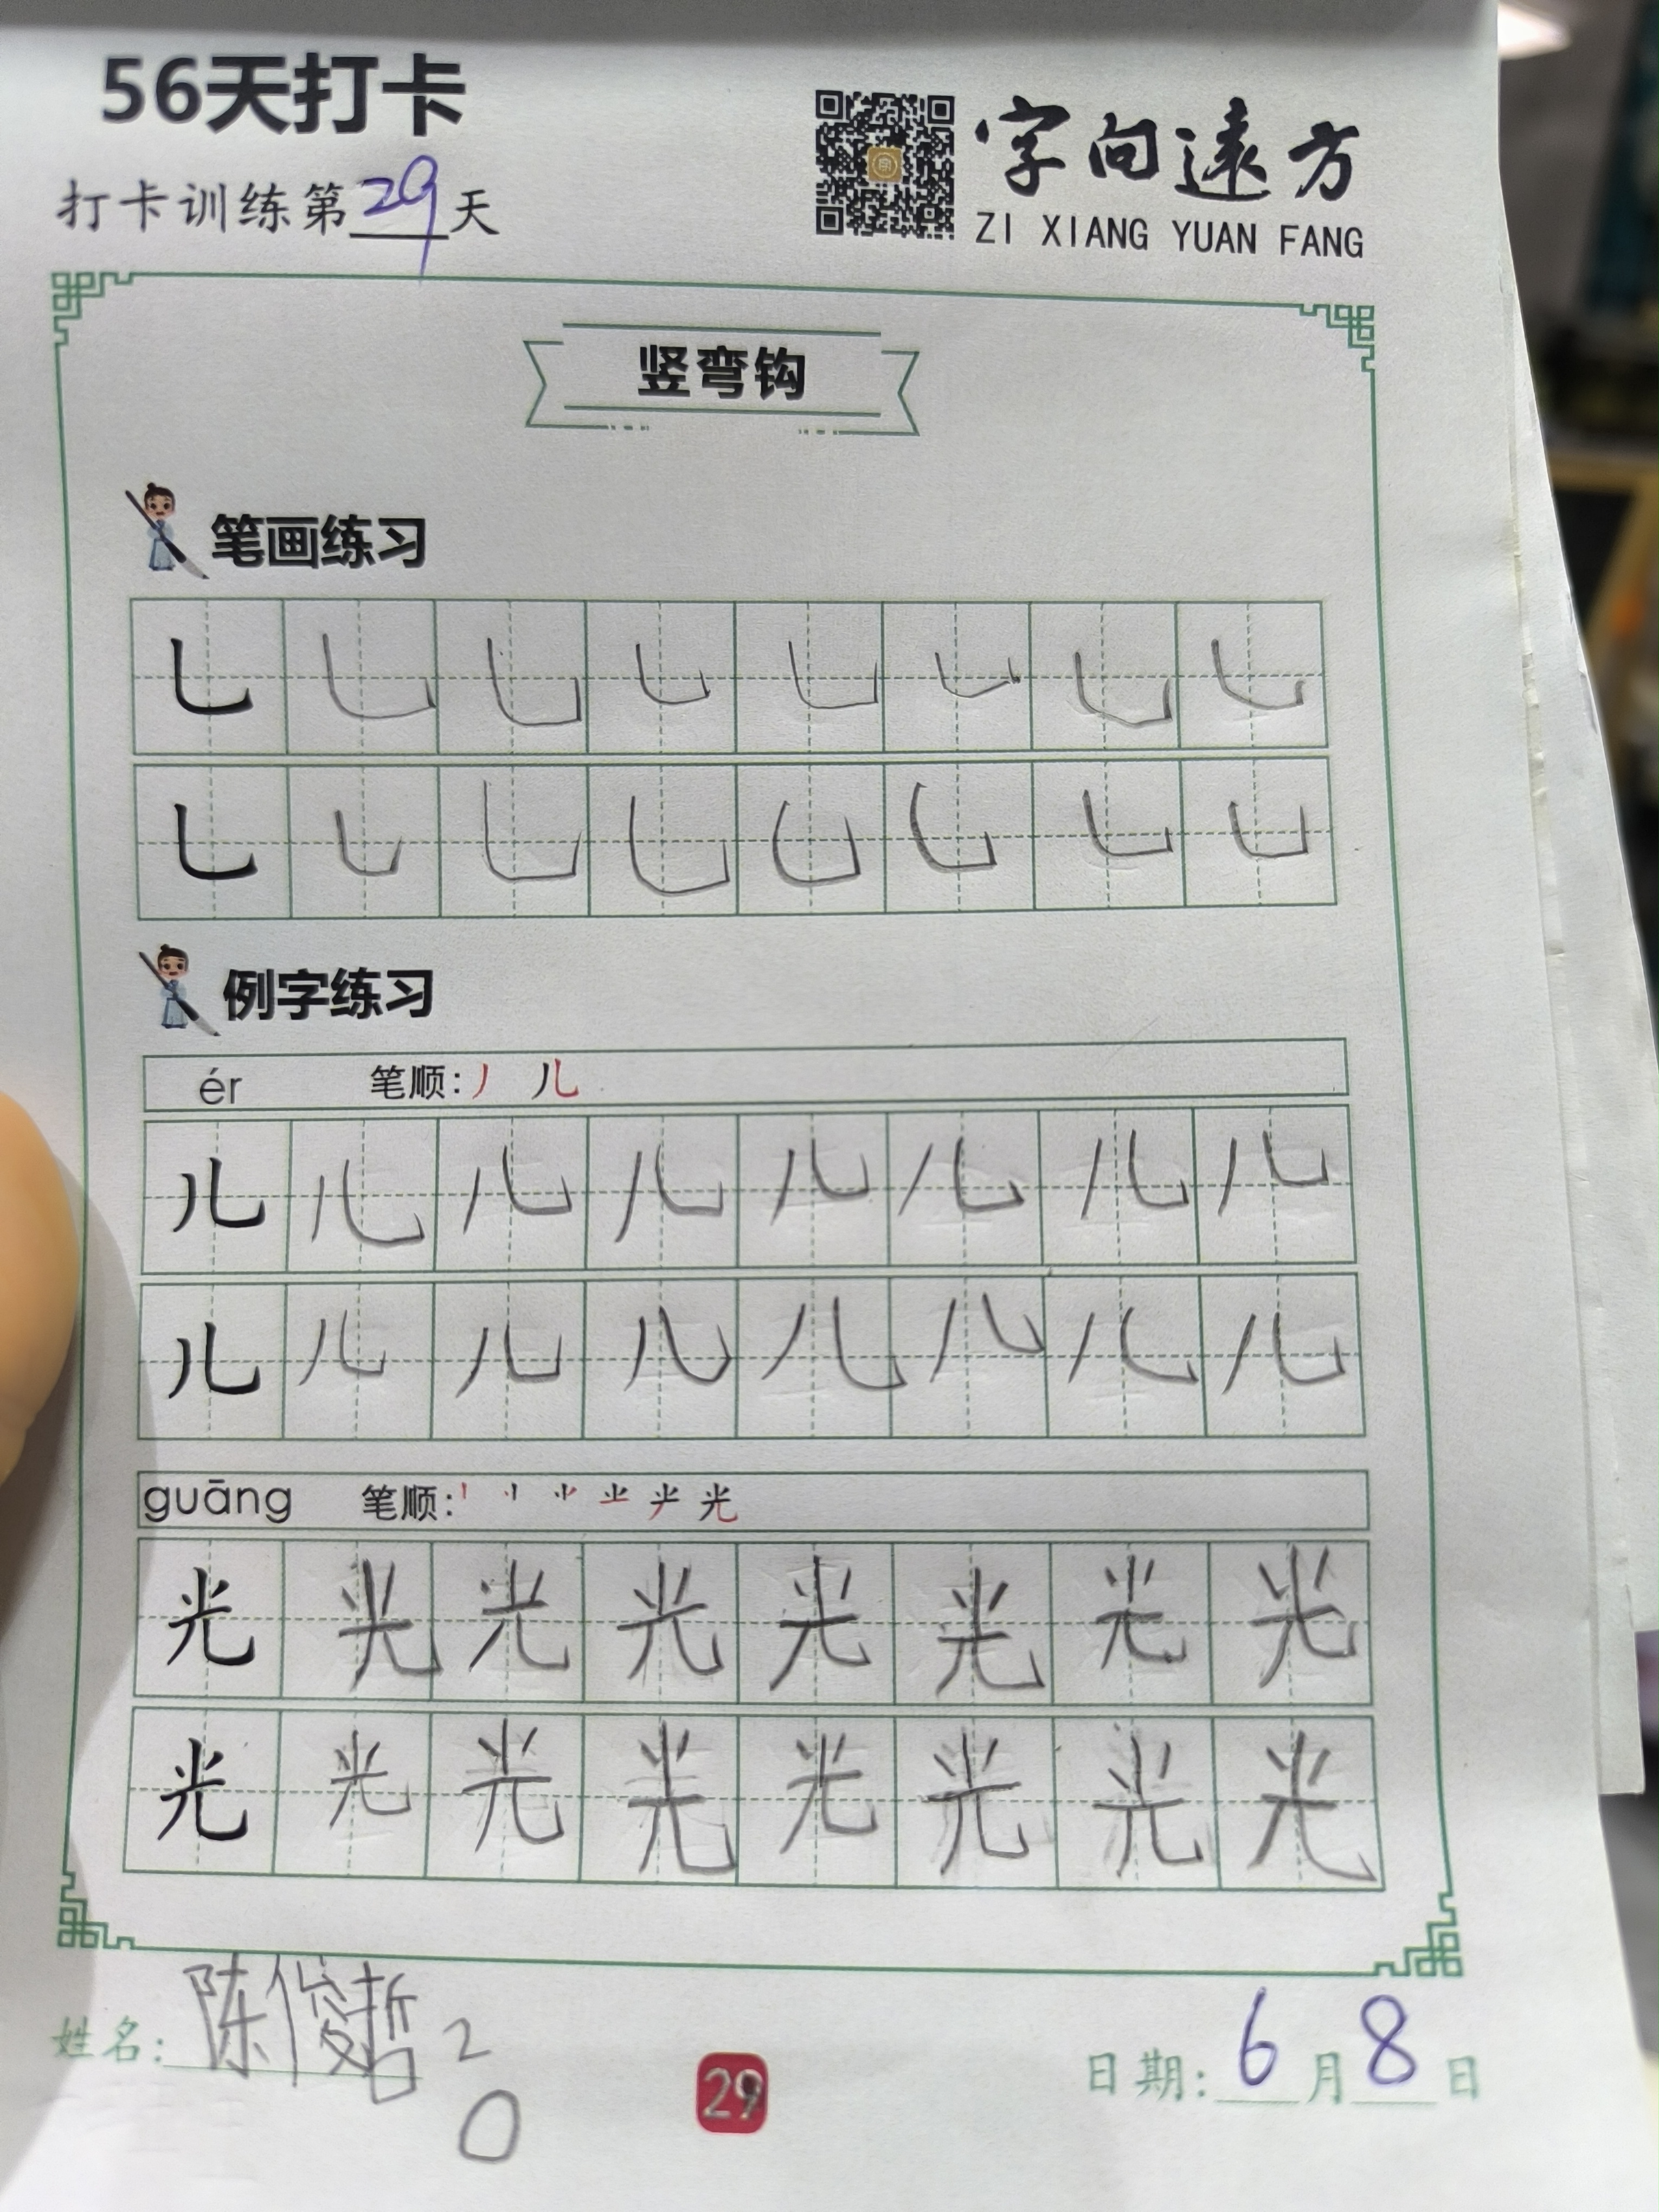 56天打卡
打卡训练第29天
字向遠方
ZI XIANG YUAN FANG
竖弯钩
笔画练习
乚 乚 乚 乚 乚 乚 乚 乚
乚 乚 乚 乚 乚 乚 乚 乚
例字练习
ér 笔顺: 丿 儿
儿 儿 儿 儿 儿 儿 儿 儿
儿 儿 儿 儿 儿 儿 儿 儿
guāng 笔顺: 光
光 光 光 光 光 光 光 光
光 光 光 光 光 光 光 光
姓名: 陈俊哲 20
29
日期: 6月8日